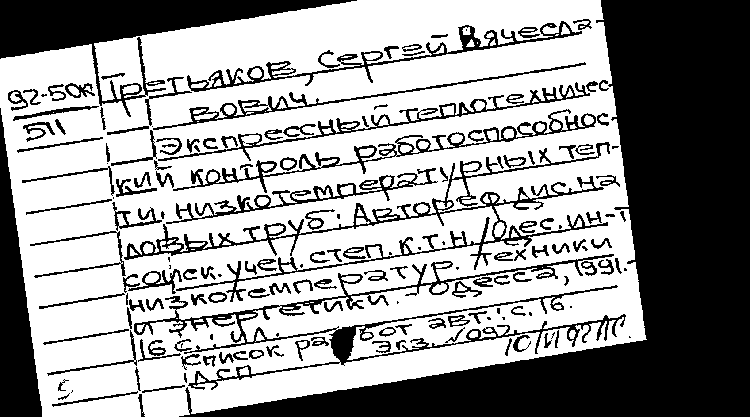 92-50к
511
Третьяков, Сергей Вячесла-
вович.
Экспрессный теплотехничес-
кий контроль работоспособнос-
ти низкотемпературных теп-
ловых труб: Автореф. дис. на
соиск. учен. степ. к.т.н. / Одес. ин-т
низкотемператур. техники
и энергетики. - Одесса, 1991. -
16 с.: ил.
Список работ авт.: с. 16.
Дсп Экз. №092.
5